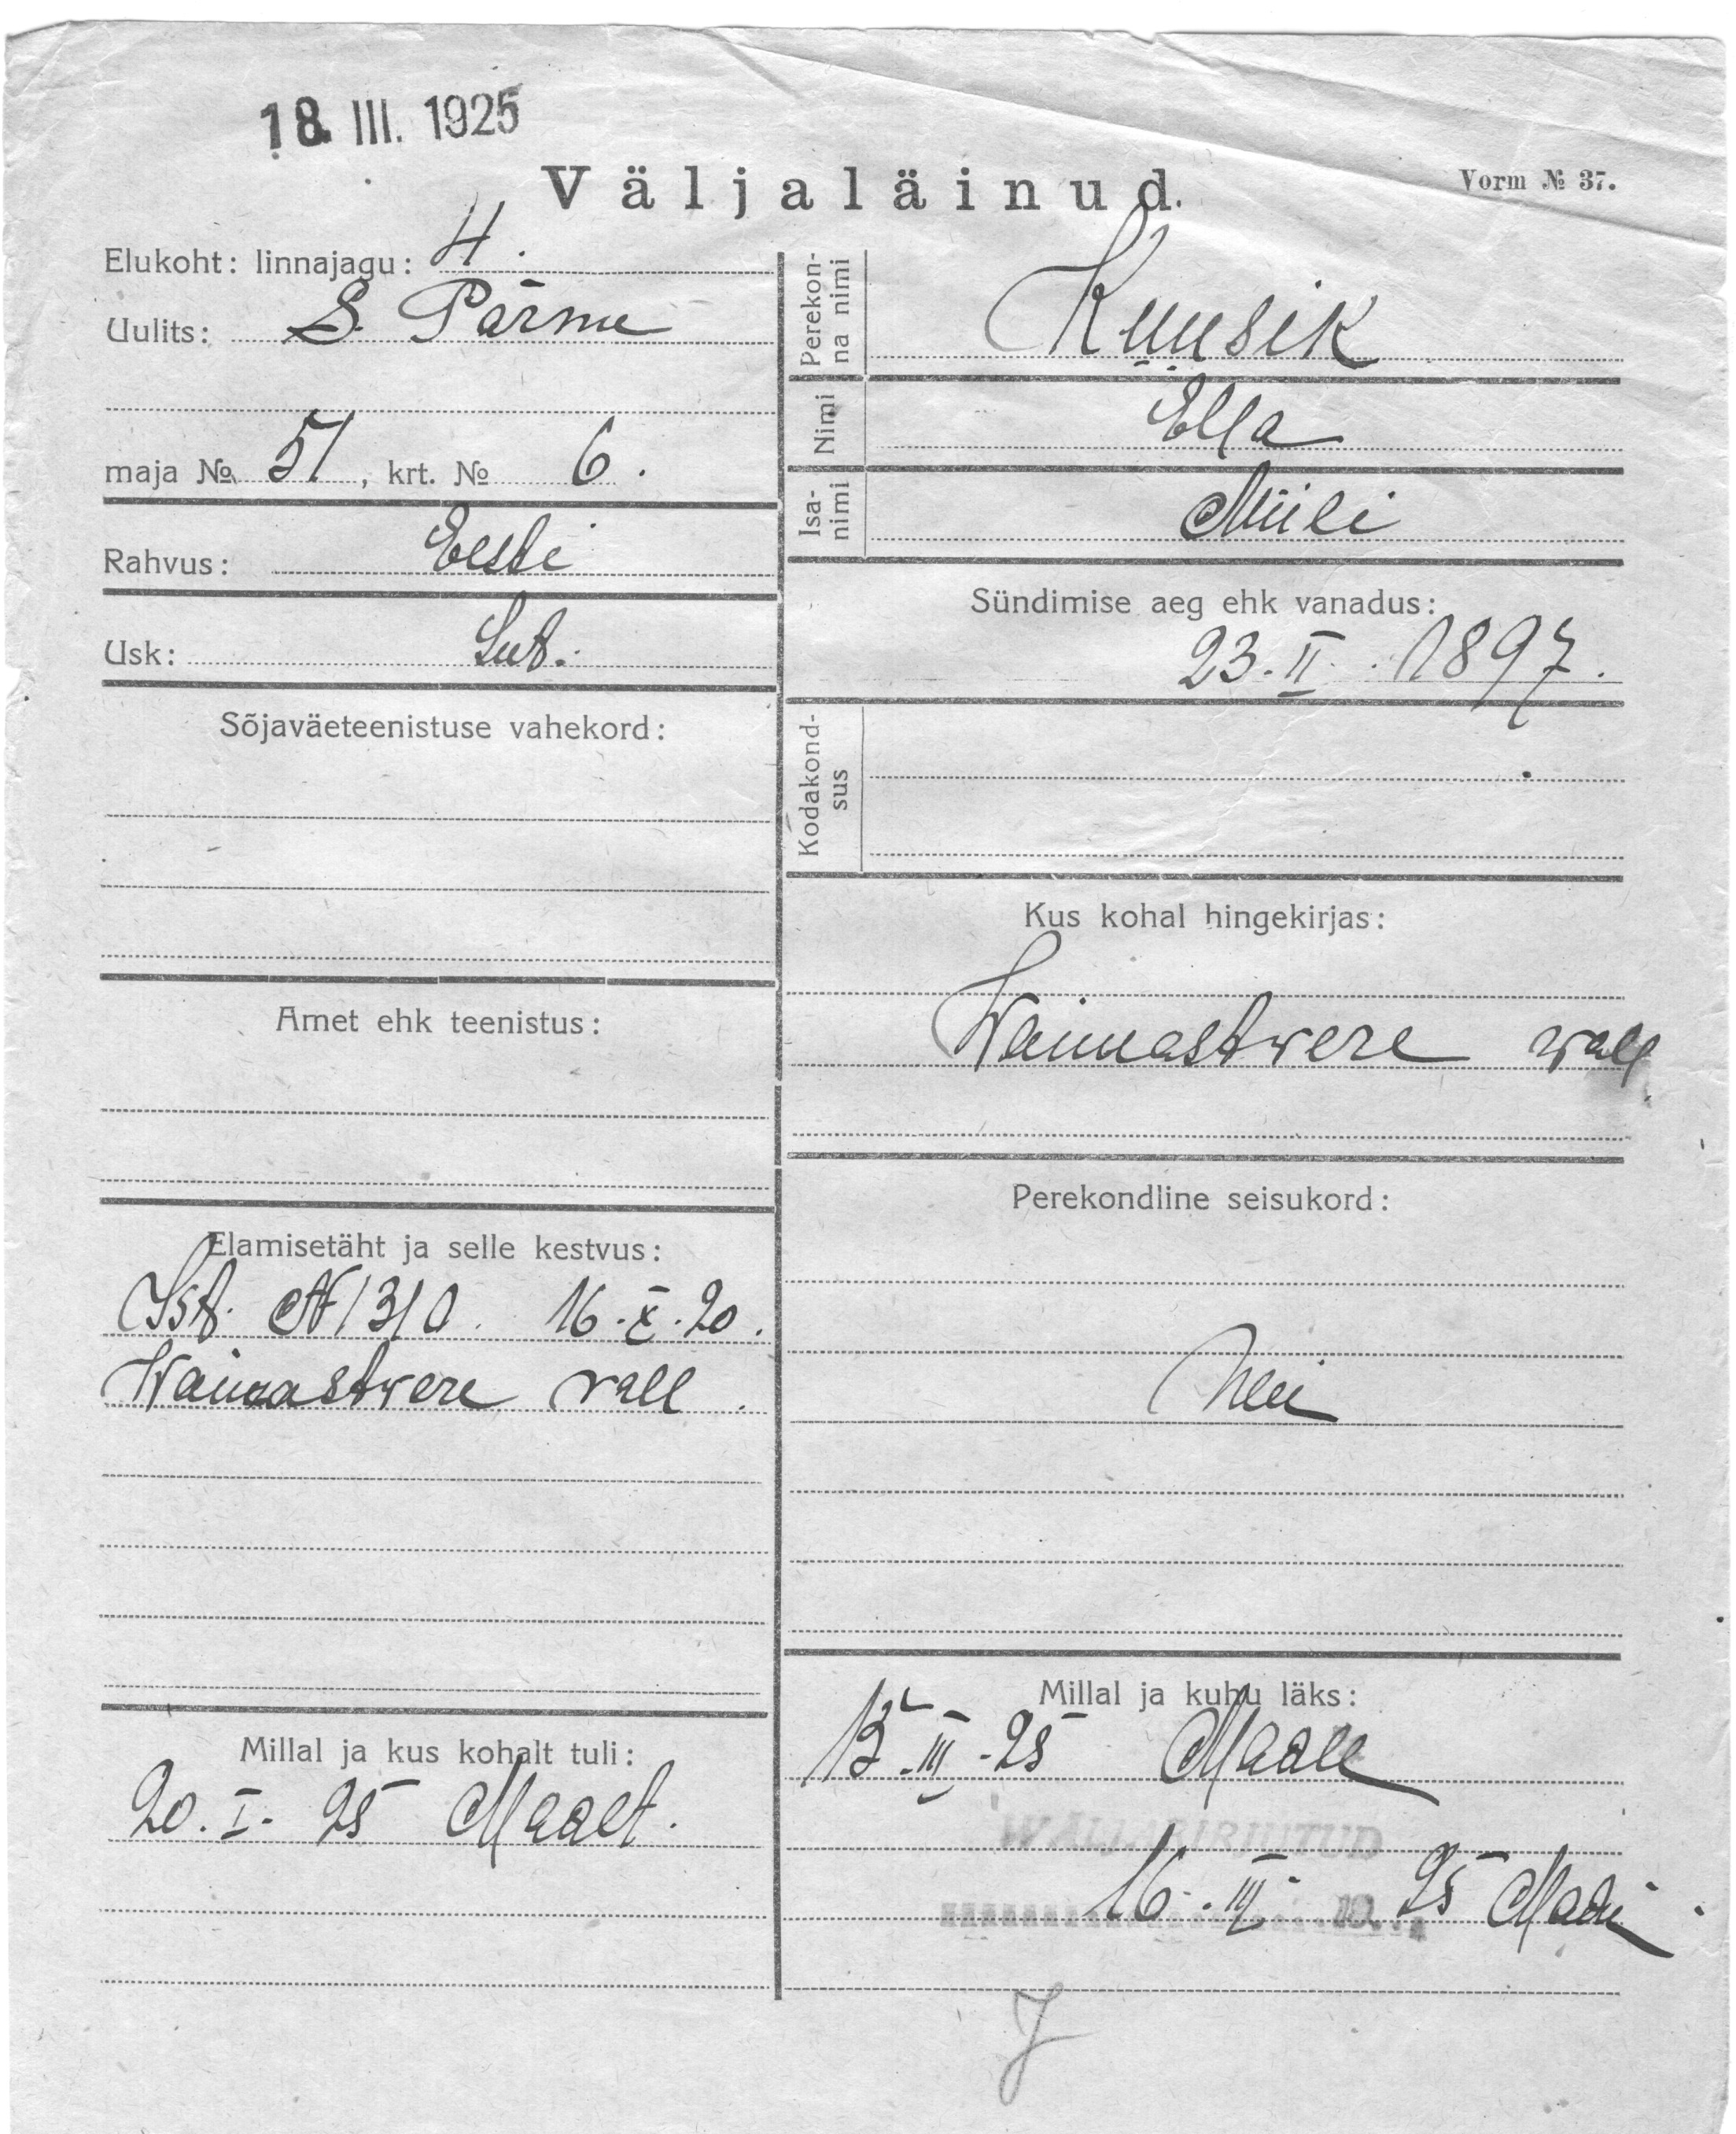 18. III. 1925
Väljaläinud.
Vorm № 37.
Elukoht: linnajagu: 4.
Uulits: S. Pärnu
maja № 51, krt. № 6.
Rahvus: Eesti
Usk: Lut.
Sõjaväeteenistuse vahekord:
Amet ehk teenistus:
Elamisetäht ja selle kestvus:
Ist. № 1310. 16.X.20.
Waimastwere vall.
Millal ja kus kohalt tuli:
20.I.25 Maalt.
Perekonna nimi
Kuusik
Nimi
Ella
Isanimi
Miili
Sündimise aeg ehk vanadus:
23.II.1897.
Kodakondsus
Kus kohal hingekirjas:
Waimastwere wall
Perekondline seisukord:
Millal ja kuhu läks:
III.25 Maale
WÄLJAKIRIUTUD
16.III.25
J